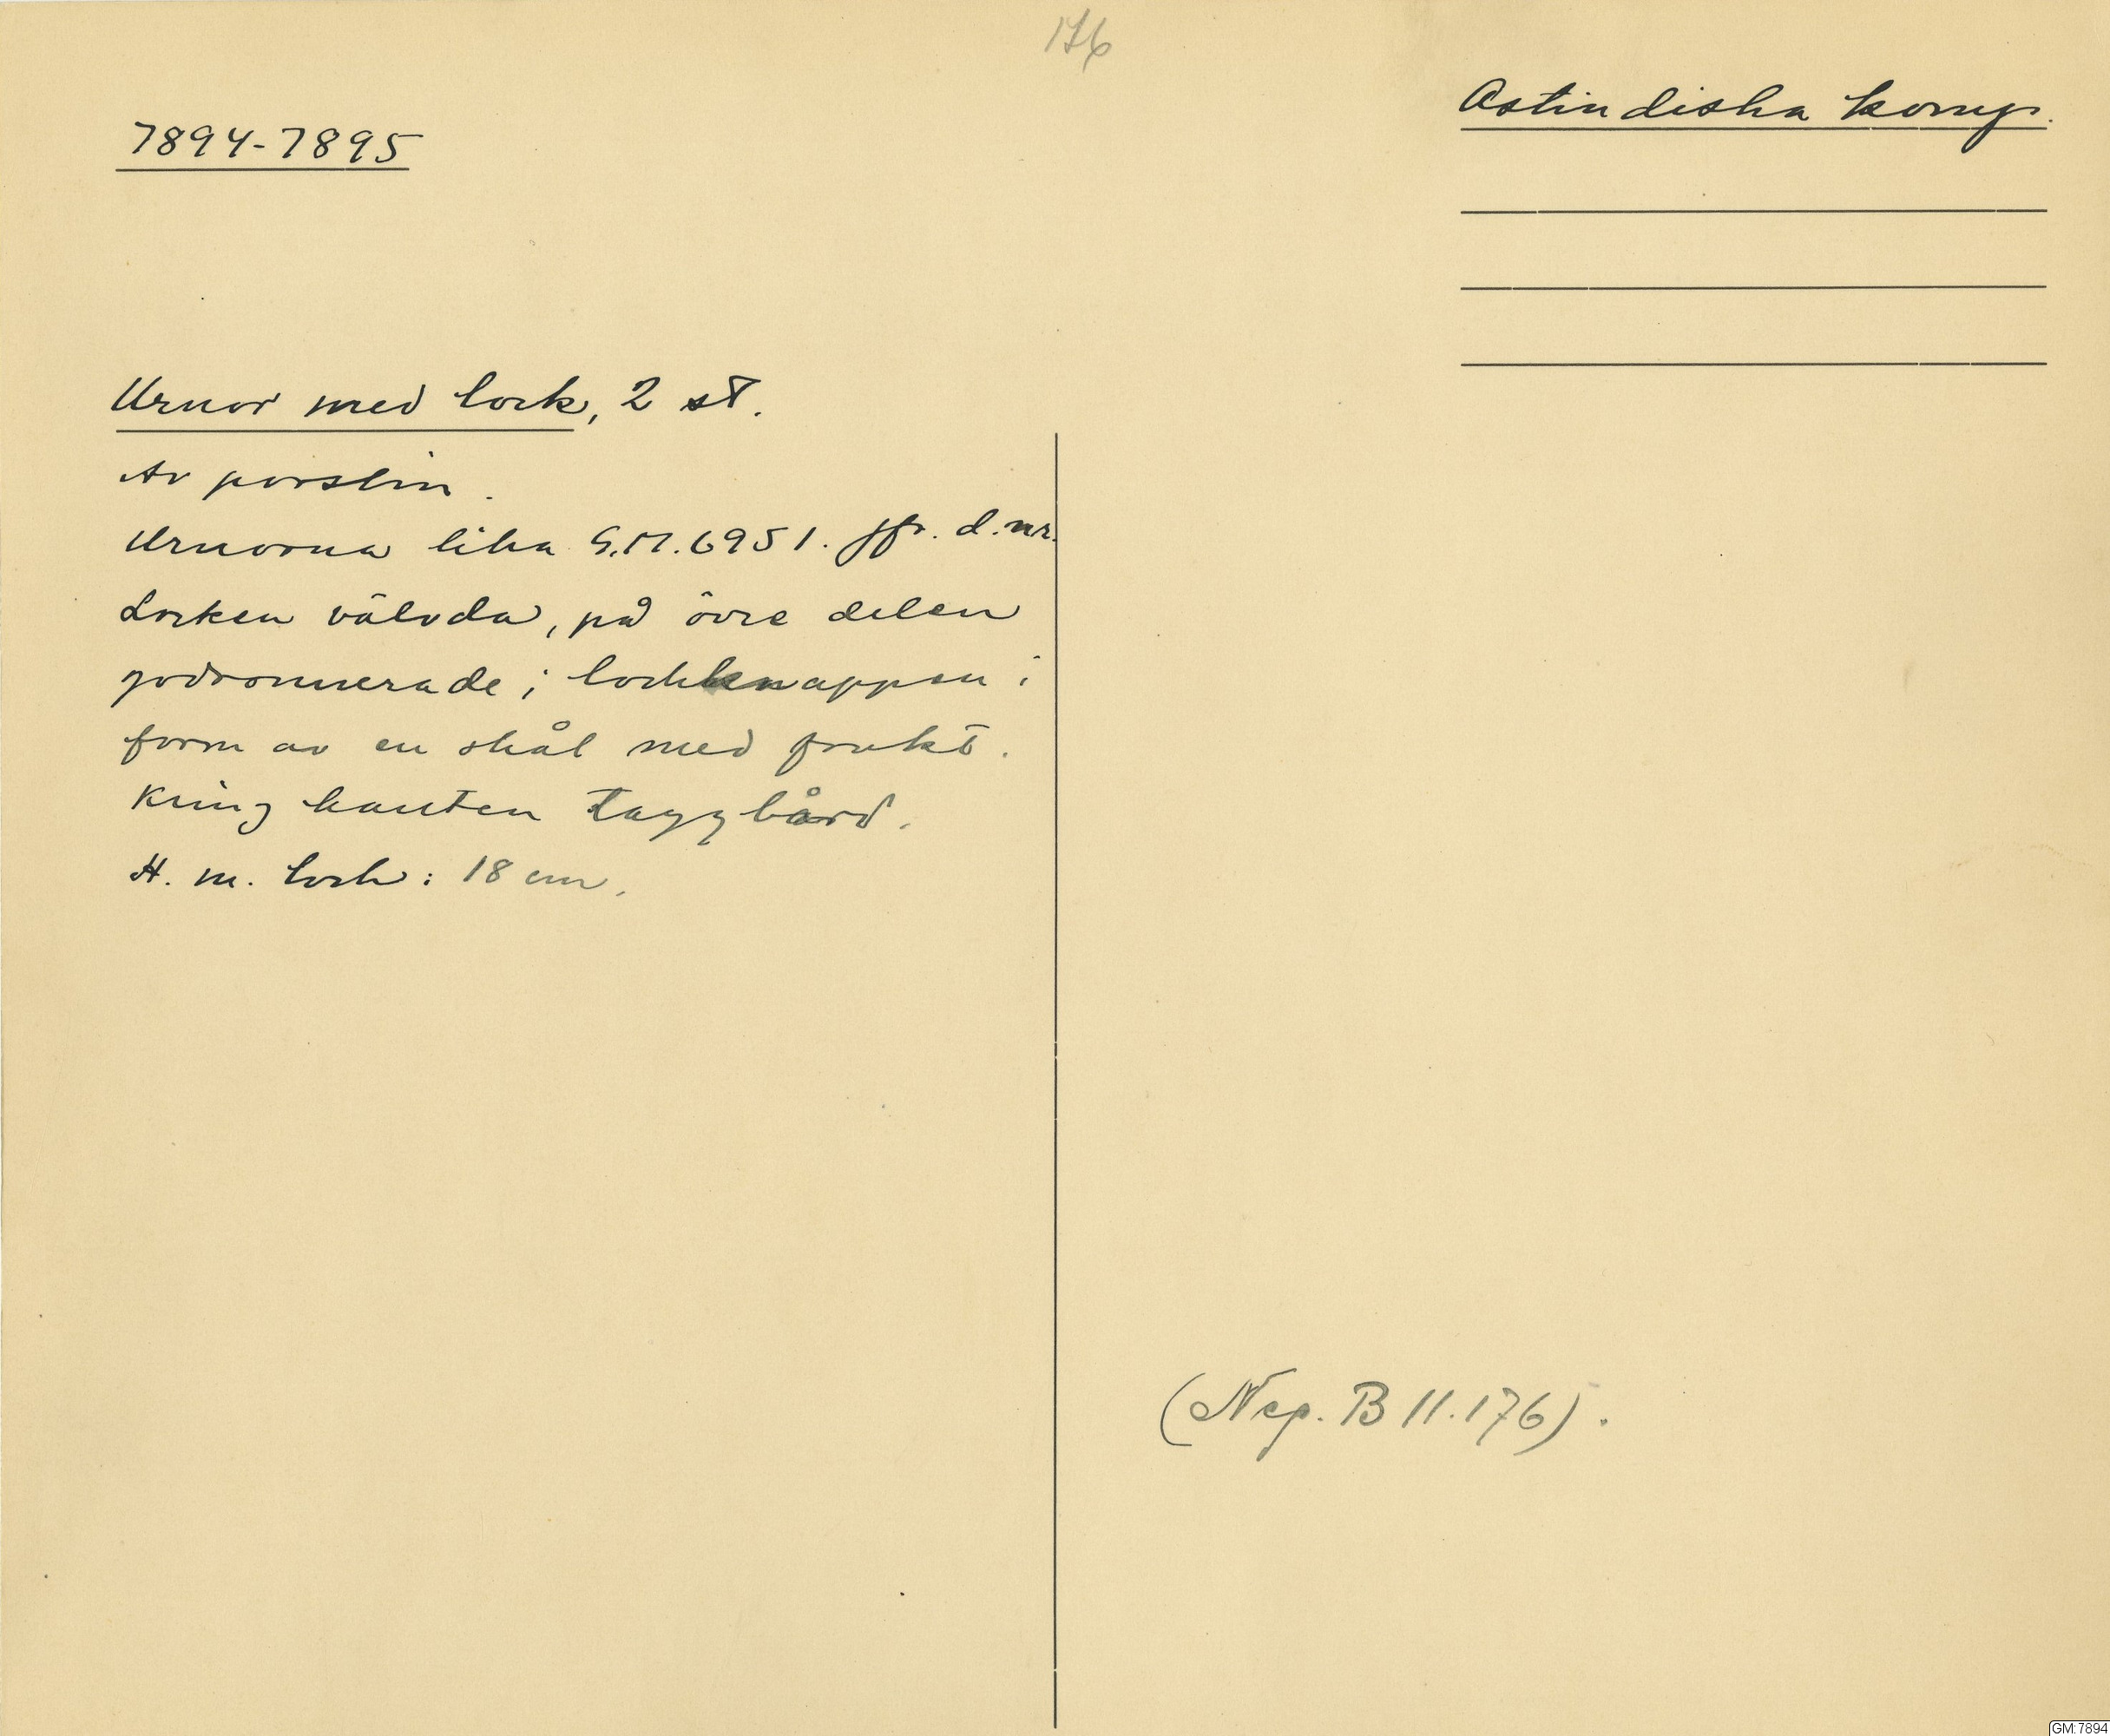 176
7894-7895
Ostindiska komp.
Urnor med lock, 2 st.
Av porslin.
Urnorna lika G.M. 6951. jfr. d. nr.
Locken välvda, på övre delen
godronnerade; lockknappen i
form av en skål med frukt.
Kring kanten taggbård.
H. m. lock: 18 cm.
(Neg. B 11.176).
GM:7894